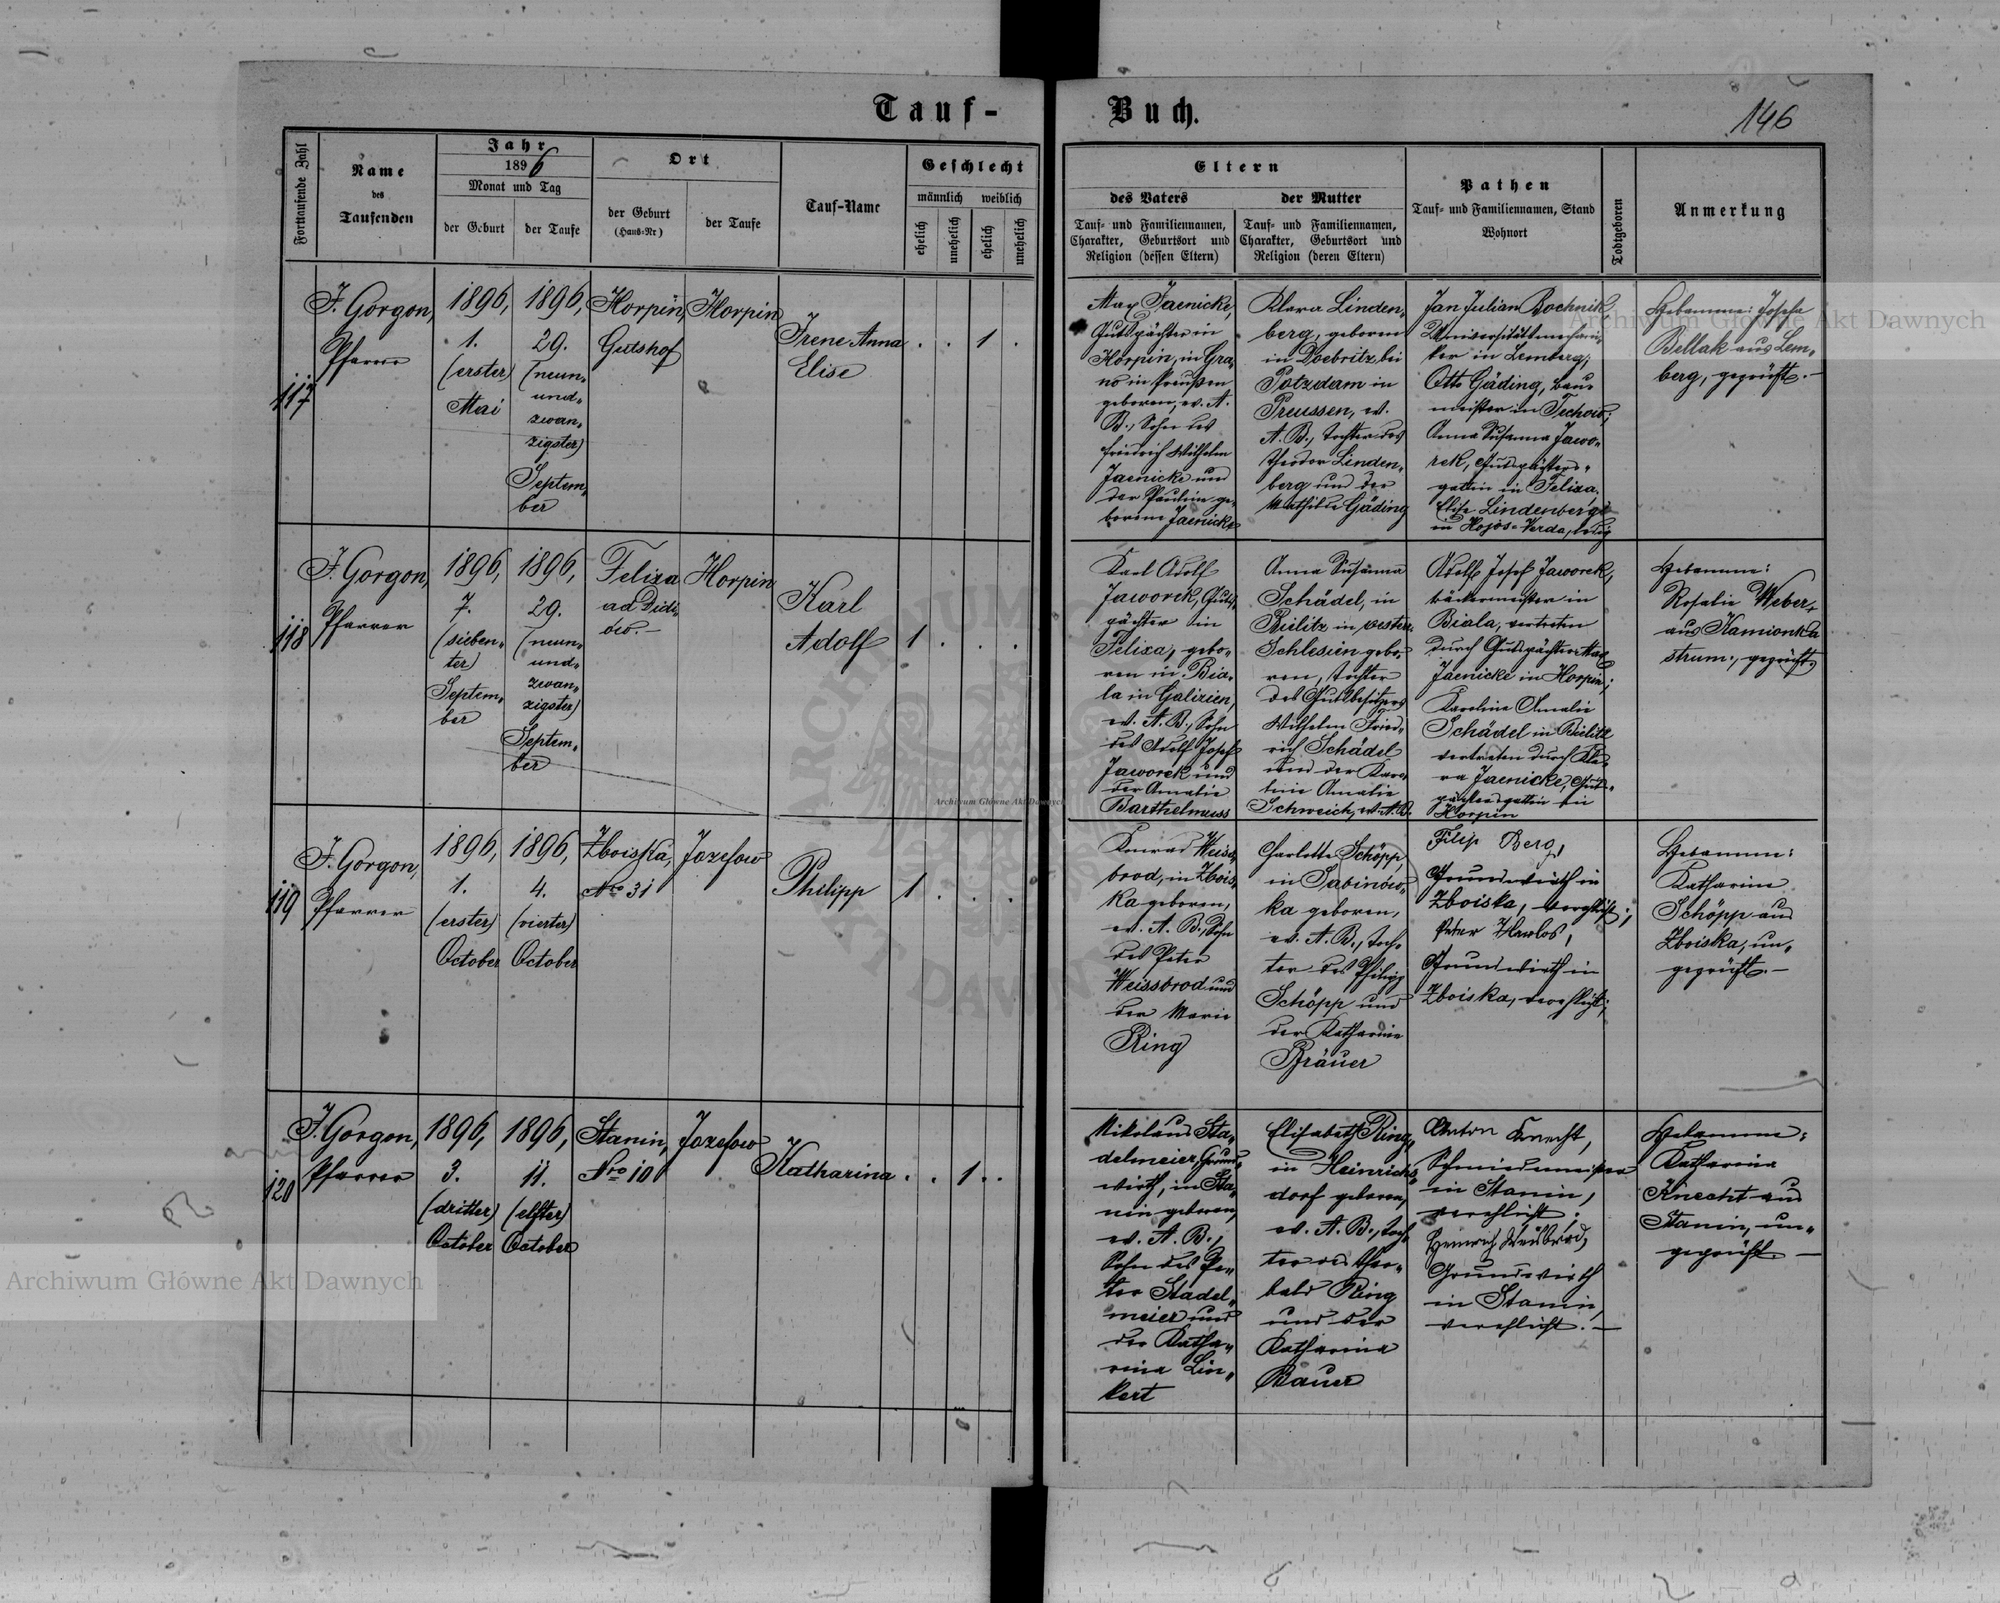 Tauf-Buch.
146
Fortlaufende Zahl
Name
des
Taufenden
Jahr
1896
Monat und Tag
der Geburt
der Taufe
Ort
der Geburt
(Haus-Nr)
der Taufe
Tauf-Name
Geschlecht
männlich weiblich
ehelich
unehelich
ehelich
unehelich
Eltern
des Vaters
Tauf- und Familiennamen,
Charakter, Geburtsort und
Religion (dessen Eltern)
der Mutter
Tauf- und Familiennamen,
Charakter, Geburtsort und
Religion (deren Eltern)
Pathen
Tauf- und Familiennamen, Stand
Wohnort
Todtgeboren
Anmerkung
117
J. Gorgon,
Pfarrer
1896,
1.
(erster)
Mai
1896,
29.
(neun-
und-
zwan-
zigster)
Septem-
ber
Horpin,
Gutshof
Horpin
Irene Anna
Elise
. . 1 .
Max Jaenicke,
Gutspächter in
Horpin, in Gra-
no in Preußen
geboren, ev. A.
B., Sohn des
Friedrich Wilhelm
Jaenicke und
der Pauline ge-
borene Jaenicke
Klara Linden-
berg, geboren
in Doebritz bei
Potzdam in
Preussen, ev.
A. B., Tochter des
Theodor Linden-
berg und der
Mathilde Gäding
Jan Julian Bochnik,
Universitätsmechani-
ker in Lemberg;
Otto Gäding, Bau-
meister in Techow;
Anna Susanna Jawo-
rek, Gutspächters-
gattin in Feliza.
Elise Lindenberg
in Hojos-Verda, ledig
Hebamme: Josefa
Bellak aus Lem-
berg, geprüft.-
118
J. Gorgon,
Pfarrer
1896,
7.
(sieben-
ter)
Septem-
ber
1896,
29.
(neun-
und-
zwan-
zigster)
Septem-
ber
Feliza
ad Didi-
ów.-
Horpin
Karl
Adolf
1 . . .
Karl Adolf
Jaworek, Guts-
pächter in
Feliza, gebo-
ren in Bia-
la in Galizien,
ev. A. B., Sohn
des Adolf Josef
Jaworek und
der Amalie
Barthelmuss
Anna Susanna
Schädel, in
Bielitz in österr.
Schlesien gebo-
ren, Tochter
des Gutsbesitzers
Wilhelm Fried-
rich Schädel
und der Karo-
line Amalie
Schweich, ev. A. B.
Adolf Josef Jaworek,
Bäckermeister in
Biala, vertreten
durch Gutspächter Max
Jaenicke in Horpin;
Karoline Amalie
Schädel in Bielitz
vertreten durch Kla-
ra Jaenicke, Guts-
pächtersgattin in
Horpin
Hebamme:
Rosalie Weber,
aus Kamionka
strum., geprüft.
119
J. Gorgon,
Pfarrer
1896,
1.
(erster)
October
1896,
4.
(vierter)
October
Zboiska,
No 31
Jozefow
Philipp
1 . . .
Konrad Weiss-
brod, in Zbois-
ka geboren,
ev. A. B., Sohn
des Peter
Weissbrod und
der Marie
Ring
Charlotte Schöpp,
in Sabinów-
ka geboren,
ev. A. B., Toch-
ter des Philipp
Schöpp und
der Katharina
Bräuer
Filip Berg,
Grundwirth in
Zboiska, verehlicht;
Peter
Grundwirth in
Zboiska, verehlicht;
Hebamme:
Katharine
Schöpp aus
Zboiska, un-
geprüft.-
120
J. Gorgon,
Pfarrer
1896,
3.
(dritter)
October
1896,
11.
(elfter)
October
Stanin,
Nro 10
Jozefow
Katharina
. . 1 .
Nikolaus Sta-
delmeier, Grund-
wirth, in Sta-
nin geboren,
ev. A. B.,
Sohn des Pe-
ter Stadel-
meier und
der Katha-
rina Lin-
kert
Elisabeth Ring,
in Heinrichs-
dorf geboren,
ev. A. B., Toch-
ter des Theo-
bald Ring
und der
Katharina
Bauer
Anton Knecht,
Schmiedmeister
in Stanin,
verehlicht;
Heinrich Weisbrod,
Grundwirth
in Stanin,
verehlicht.-
Hebamme:
Katharina
Knecht aus
Stanin, un-
geprüft.-
Archiwum Główne Akt Dawnych
Archiwum Główne Akt Dawnych
Archiwum Główne Akt Dawnych